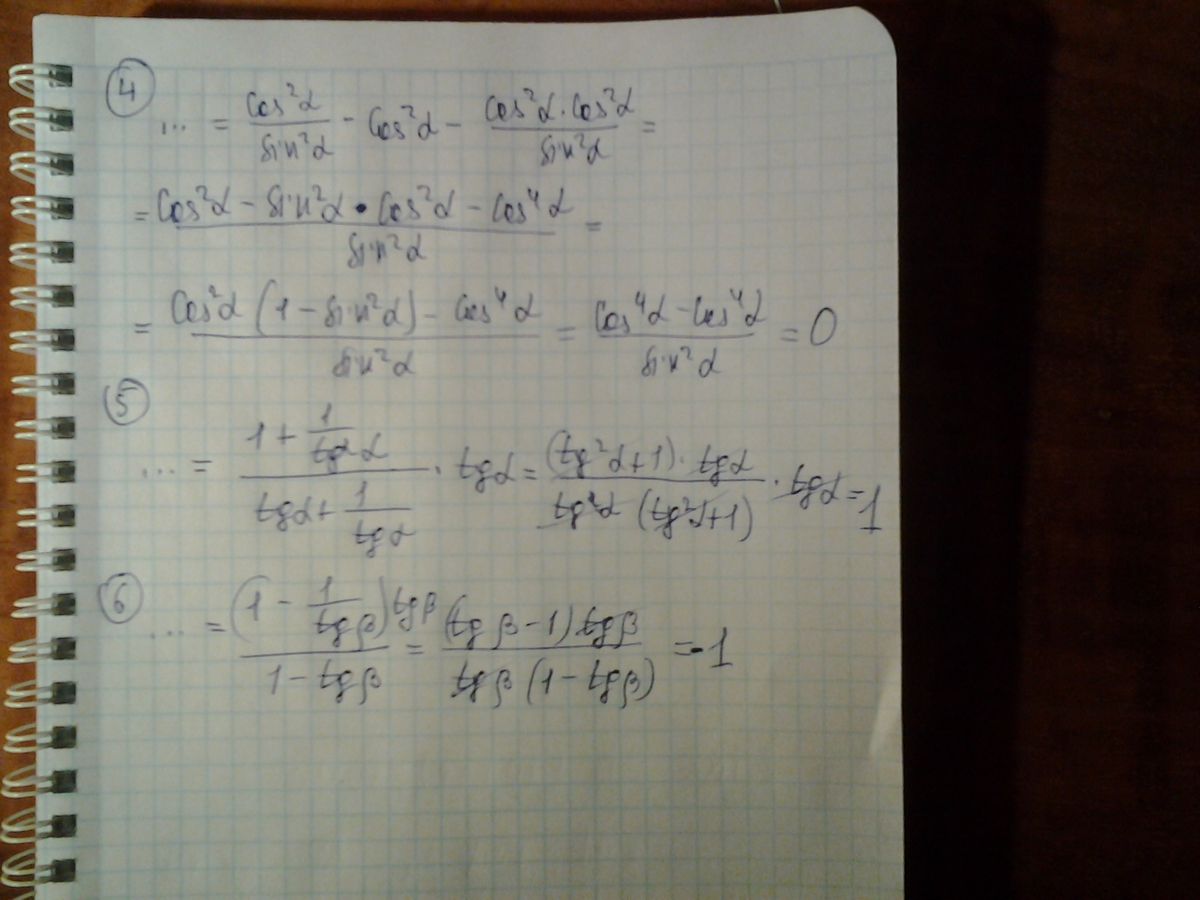 ④
... = cos²α/sin²α - cos²α - cos²α·cos²α/sin²α =
= (cos²α - sin²α · cos²α - cos⁴α)/sin²α =
= (cos²α (1 - sin²α) - cos⁴α)/sin²α = (cos⁴α - cos⁴α)/sin²α = 0
⑤
... = (1 + 1/tg²α)/(tgα + 1/tgα) · tgα = (tg²α+1)· tgα/(tg²α (tg²α+1)) · tgα = 1
⑥
... = (1 - 1/tgβ)tgβ/(1 - tgβ) = (tgβ - 1) tgβ/(tgβ (1 - tgβ)) = -1